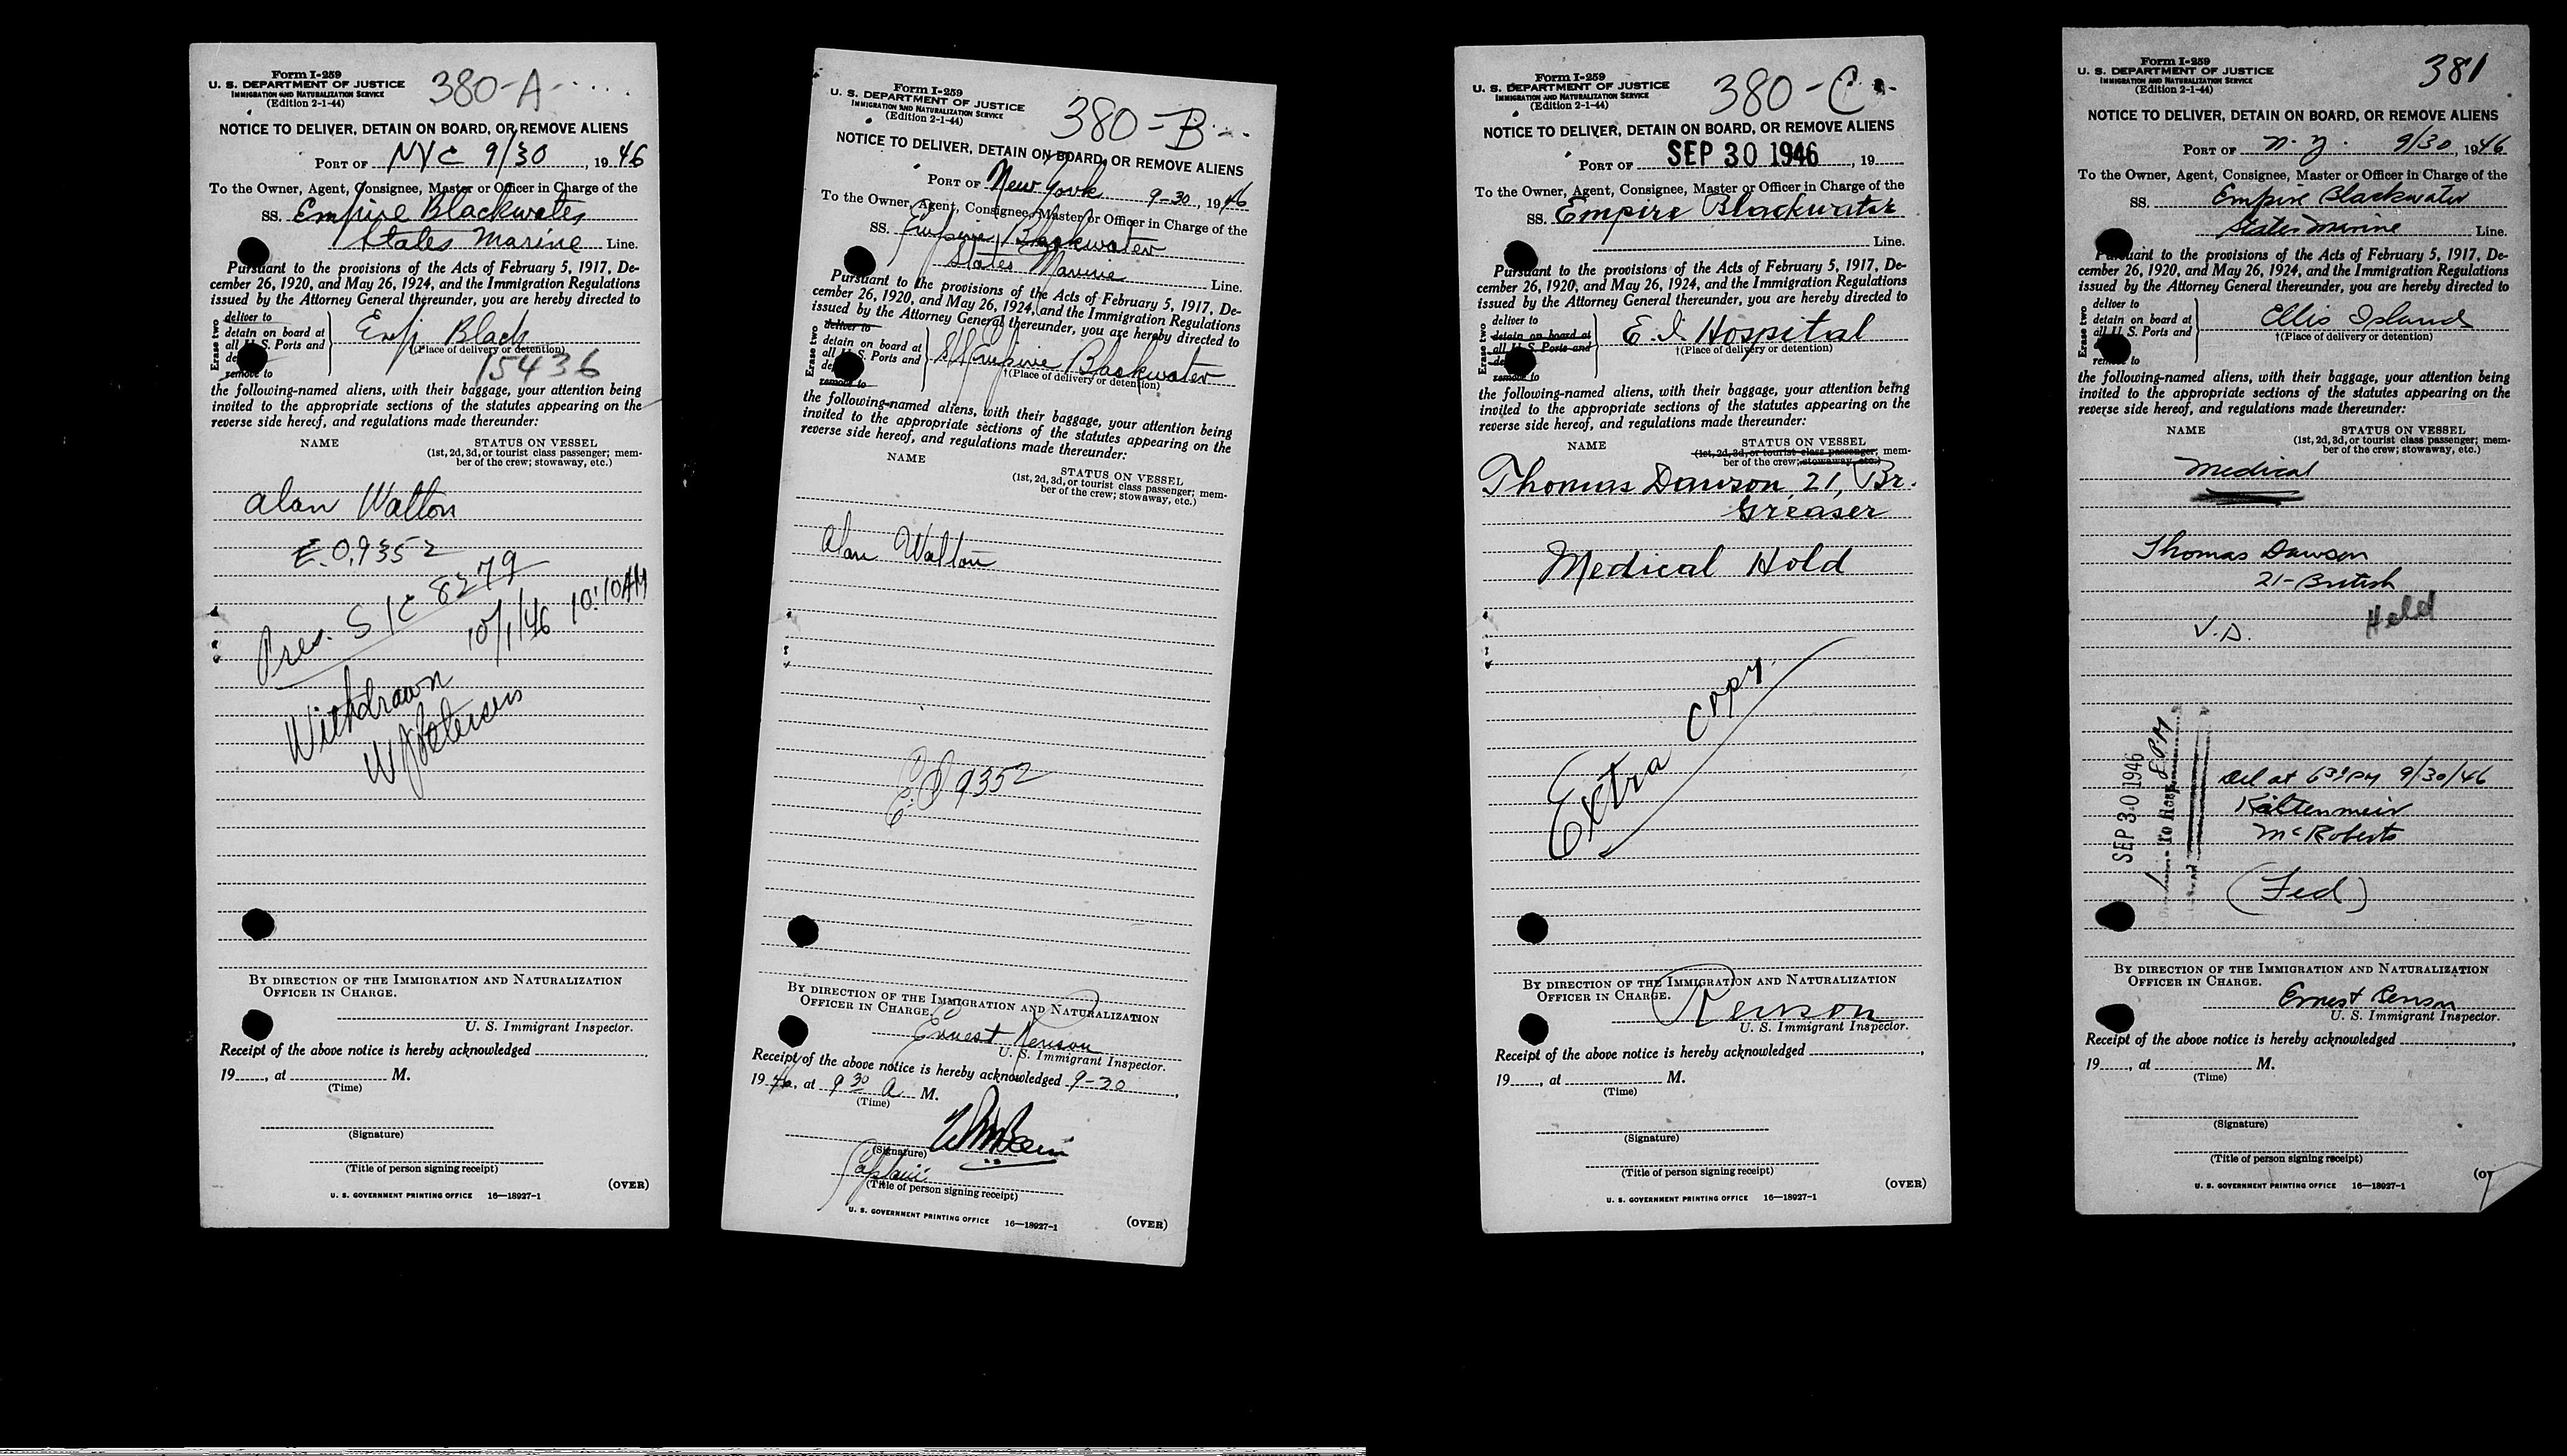 Form I-259
U. S. DEPARTMENT OF JUSTICE
IMMIGRATION AND NATURALIZATION SERVICE
(Edition 2-1-44)
380-A
NOTICE TO DELIVER, DETAIN ON BOARD, OR REMOVE ALIENS
PORT OF NYC 9/30, 1946
To the Owner, Agent, Consignee, Master or Officer in Charge of the
SS. Empire Blackwater
States Marine Line.
Pursuant to the provisions of the Acts of February 5, 1917, De-
cember 26, 1920, and May 26, 1924, and the Immigration Regulations
issued by the Attorney General thereunder, you are hereby directed to
Erase two
deliver to
detain on board at
all U. S. Ports and
remove to
Emp Black
(Place of delivery or detention)
15436
the following-named aliens, with their baggage, your attention being
invited to the appropriate sections of the statutes appearing on the
reverse side hereof, and regulations made thereunder:
NAME STATUS ON VESSEL
(1st, 2d, 3d, or tourist class passenger; mem-
ber of the crew; stowaway, etc.)
Alan Walton
E.O. 9352
Pres. S/C 8279
10/1/46 10:10AM
Withdrawn
By DIRECTION OF THE IMMIGRATION AND NATURALIZATION
OFFICER IN CHARGE.
U. S. Immigrant Inspector.
Receipt of the above notice is hereby acknowledged
19, at M.
(Time)
(Signature)
(Title of person signing receipt)
(OVER)
U. S. GOVERNMENT PRINTING OFFICE 16—18927-1
Form I-259
U. S. DEPARTMENT OF JUSTICE
IMMIGRATION AND NATURALIZATION SERVICE
(Edition 2-1-44)
380-B
NOTICE TO DELIVER, DETAIN ON BOARD, OR REMOVE ALIENS
PORT OF New York 9-30, 1946
To the Owner, Agent, Consignee, Master or Officer in Charge of the
SS. Empire Blackwater
States Marine Line.
Pursuant to the provisions of the Acts of February 5, 1917, De-
cember 26, 1920, and May 26, 1924, and the Immigration Regulations
issued by the Attorney General thereunder, you are hereby directed to
Erase two
deliver to
detain on board at
all U. S. Ports and
remove to
S/S Empire Blackwater
†(Place of delivery or detention)
the following-named aliens, with their baggage, your attention being
invited to the appropriate sections of the statutes appearing on the
reverse side hereof, and regulations made thereunder:
NAME STATUS ON VESSEL
(1st, 2d, 3d, or tourist class passenger; mem-
ber of the crew; stowaway, etc.)
Alan Walton
E.O 9352
By DIRECTION OF THE IMMIGRATION AND NATURALIZATION
OFFICER IN CHARGE.
Ernest Renson
U. S. Immigrant Inspector.
Receipt of the above notice is hereby acknowledged 9-30
1946, at 9 30 A M.
(Time)
(Signature)
Captain
(Title of person signing receipt)
U. S. GOVERNMENT PRINTING OFFICE 16—18927-1
(OVER)
Form I-259
U. S. DEPARTMENT OF JUSTICE
IMMIGRATION AND NATURALIZATION SERVICE
(Edition 2-1-44)
380-C
NOTICE TO DELIVER, DETAIN ON BOARD, OR REMOVE ALIENS
PORT OF SEP 30 1946, 19
To the Owner, Agent, Consignee, Master or Officer in Charge of the
SS. Empire Blackwater
Line.
Pursuant to the provisions of the Acts of February 5, 1917, De-
cember 26, 1920, and May 26, 1924, and the Immigration Regulations
issued by the Attorney General thereunder, you are hereby directed to
Erase two
deliver to
detain on board at
all U. S. Ports and
remove to
E. I. Hospital
†(Place of delivery or detention)
the following-named aliens, with their baggage, your attention being
invited to the appropriate sections of the statutes appearing on the
reverse side hereof, and regulations made thereunder:
NAME STATUS ON VESSEL
(1st, 2d, 3d, or tourist class passenger; mem-
ber of the crew; stowaway, etc.)
Thomas Dawson, 21, Br.
Greaser
Medical Hold
Extra Copy
By DIRECTION OF THE IMMIGRATION AND NATURALIZATION
OFFICER IN CHARGE.
Renson
U. S. Immigrant Inspector.
Receipt of the above notice is hereby acknowledged
19, at M.
(Time)
(Signature)
(Title of person signing receipt)
(OVER)
U. S. GOVERNMENT PRINTING OFFICE 16—18927-1
Form I-259
U. S. DEPARTMENT OF JUSTICE
IMMIGRATION AND NATURALIZATION SERVICE
(Edition 2-1-44)
381
NOTICE TO DELIVER, DETAIN ON BOARD, OR REMOVE ALIENS
PORT OF N. Y. 9/30, 1946
To the Owner, Agent, Consignee, Master or Officer in Charge of the
SS. Empire Blackwater
States Marine Line.
Pursuant to the provisions of the Acts of February 5, 1917, De-
cember 26, 1920, and May 26, 1924, and the Immigration Regulations
issued by the Attorney General thereunder, you are hereby directed to
Erase two
deliver to
detain on board at
all U. S. Ports and
remove to
Ellis Island
†(Place of delivery or detention)
the following-named aliens, with their baggage, your attention being
invited to the appropriate sections of the statutes appearing on the
reverse side hereof, and regulations made thereunder:
NAME STATUS ON VESSEL
(1st, 2d, 3d, or tourist class passenger; mem-
ber of the crew; stowaway, etc.)
Medical
Thomas Dawson
21-British
Held
V.D.
SEP 30 1946
To Hosp. 8 PM
Del at 6 30 PM 9/30/46
Kaltenmeir
McRoberts
(Fed)
By DIRECTION OF THE IMMIGRATION AND NATURALIZATION
OFFICER IN CHARGE.
Ernest Renson
U. S. Immigrant Inspector.
Receipt of the above notice is hereby acknowledged
19, at M.
(Time)
(Signature)
(Title of person signing receipt)
U. S. GOVERNMENT PRINTING OFFICE 16—18927-1